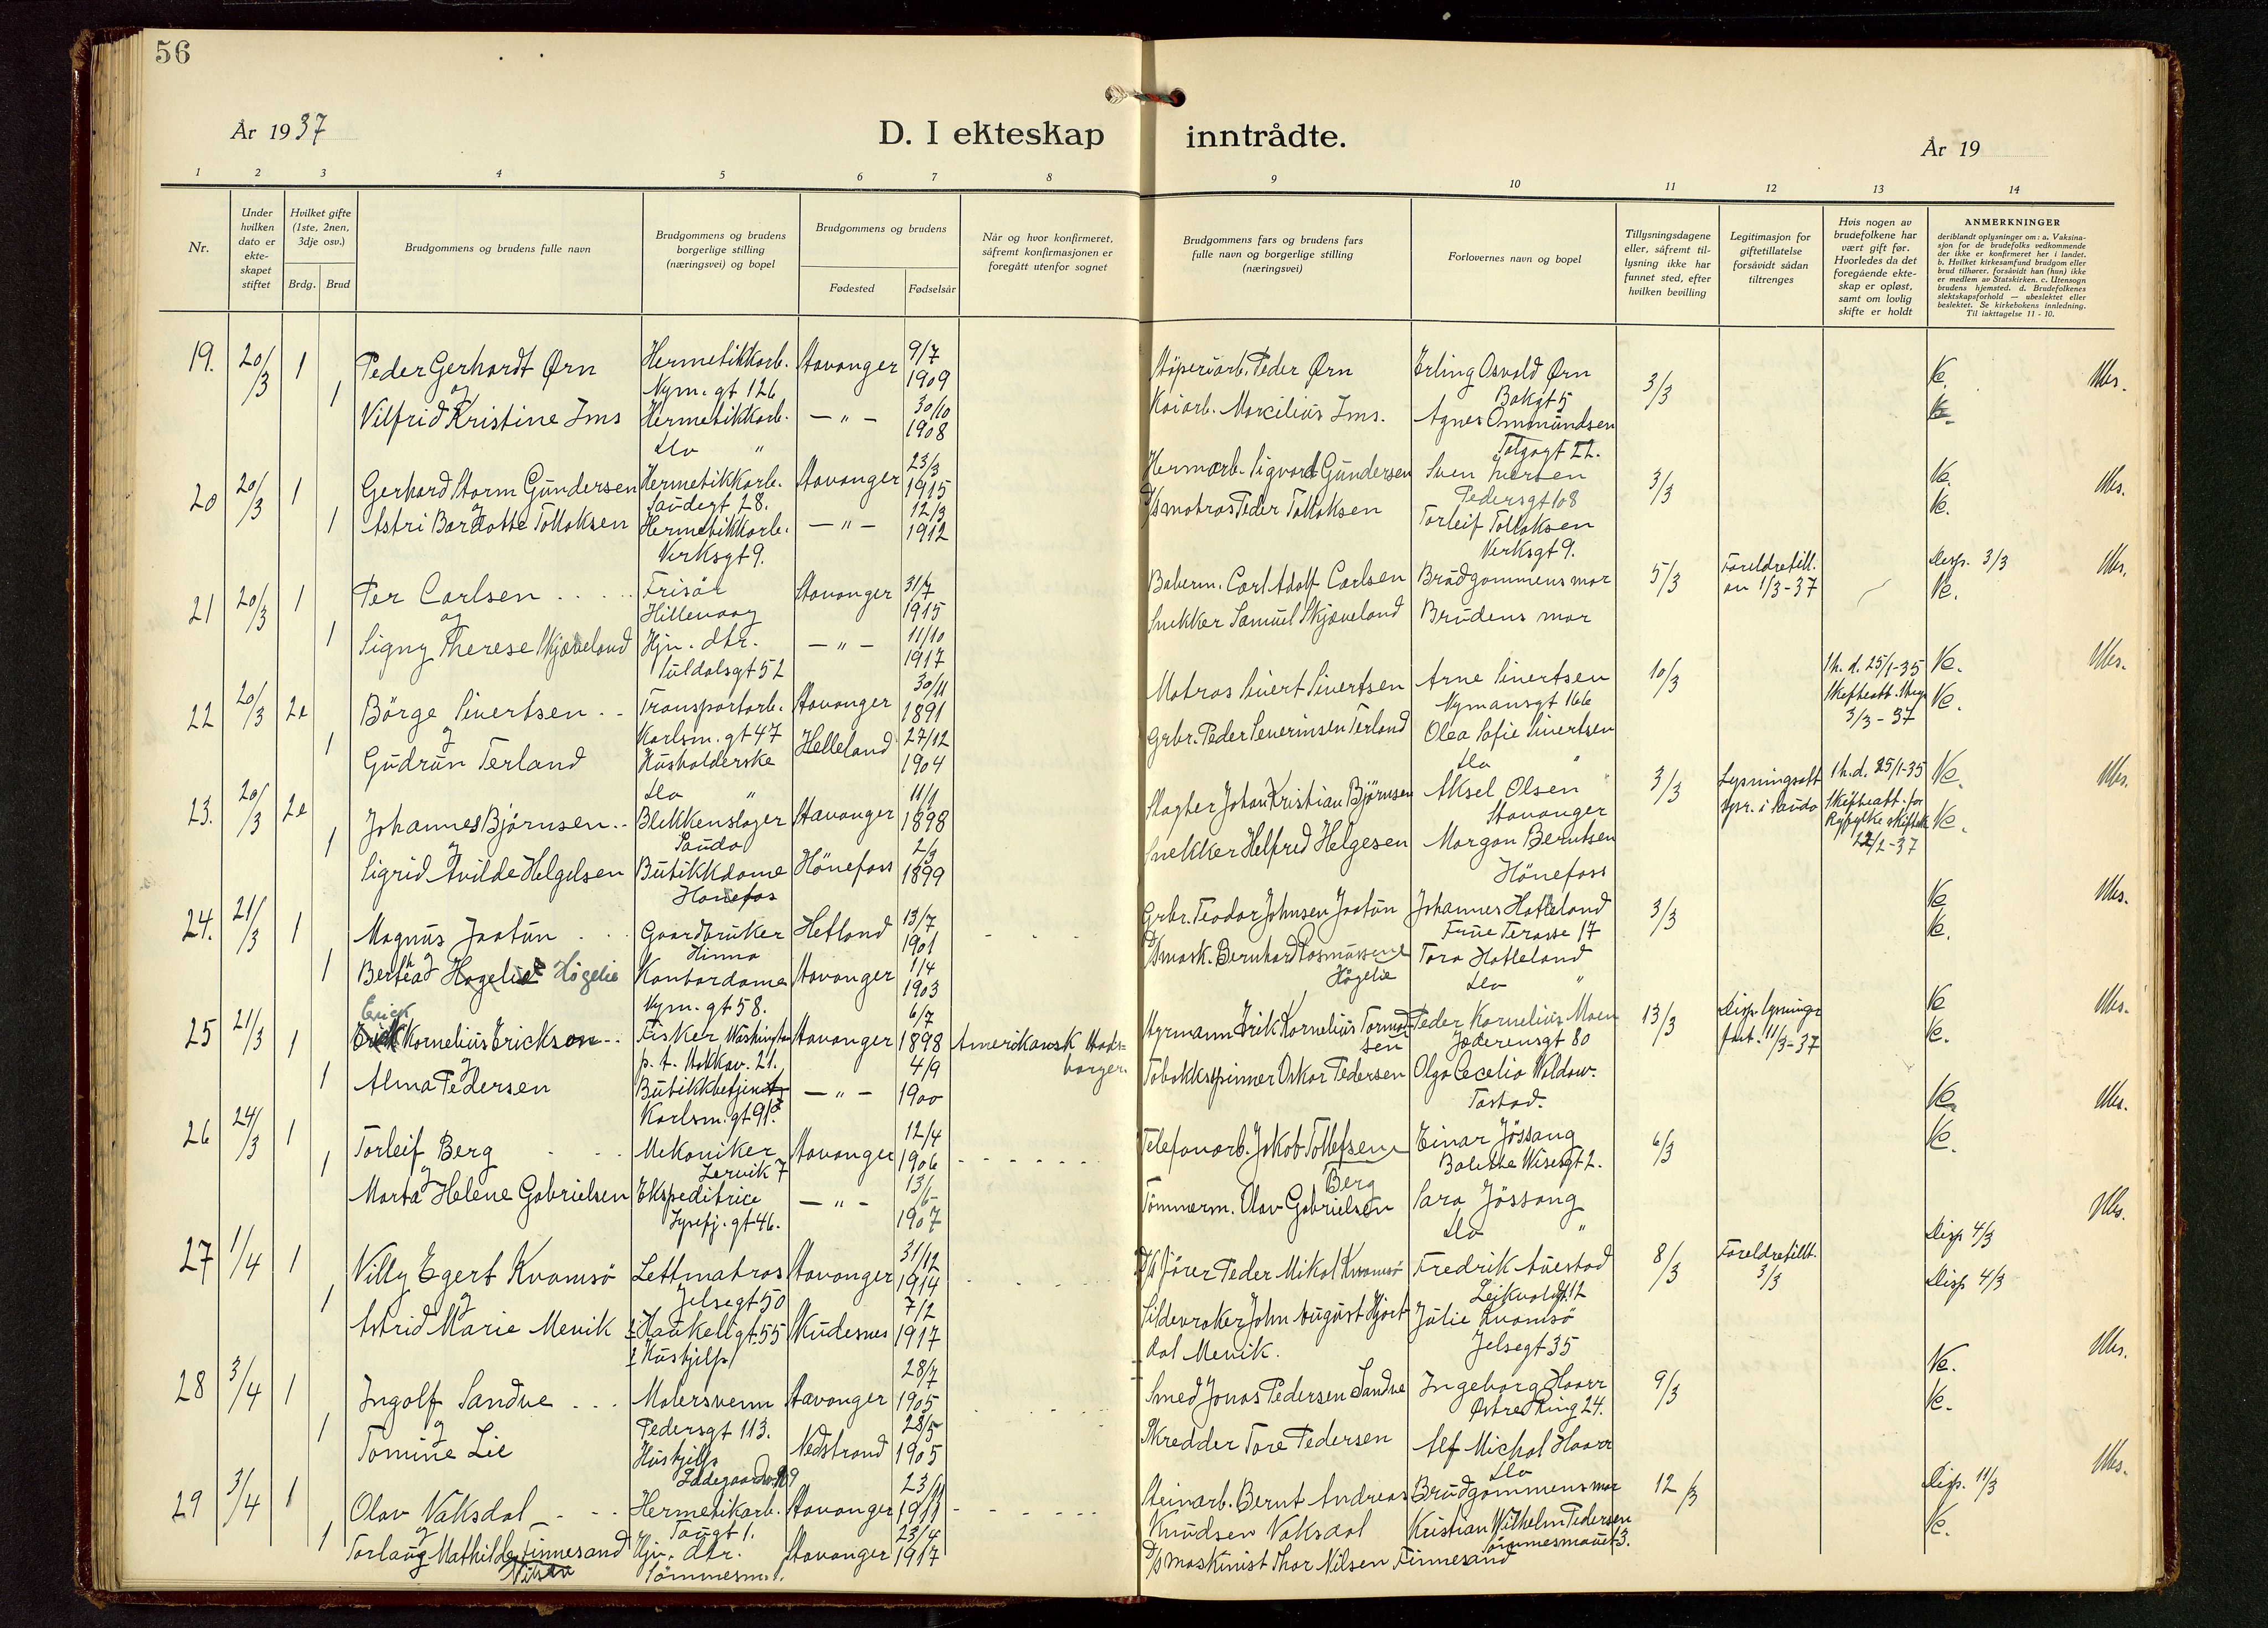 56
År 1937
D. I ekteskap inntrådte.
År 19
1 2 3 4 5 6 7 8 9 10 11 12 13 14
Nr.
Under hvilken dato er ekte-skapet stiftet
Hvilket gifte (1ste, 2nen, 3dje osv.)
Brdg. Brud
Brudgommens og brudens fulle navn
Brudgommens og brudens borgerlige stilling (næringsvei) og bopel
Brudgommens og brudens
Fødested Fødselsår
Når og hvor konfirmeret, såfremt konfirmasjonen er foregått utenfor sognet
Brudgommens fars og brudens fars fulle navn og borgerlige stilling (næringsvei)
Forlovernes navn og bopel
Tillysningsdagene eller, såfremt til-lysning ikke har funnet sted, efter hvilken bevilling
Legitimasjon for giftetillatelse forsåvidt sådan tiltrenges
Hvis nogen av brudefolkene har vært gift før. Hvorledes da det foregående ekte-skap er opløst, samt om lovlig skifte er holdt
ANMERKNINGER
deriblandt oplysninger om: a. Vaksina-sjon for de brudefolks vedkommende der ikke er konfirmeret her i landet. b. Hvilket kirkesamfund brudgom eller brud tilhører, forsåvidt han (hun) ikke er medlem av Statskirken. c. Utensogn brudens hjemsted. d. Brudefolkenes slektskapsforhold — ubeslektet eller beslektet. Se kirkebokens innledning. Til iakttagelse 11 - 10.
19. 20/3 1 Peder Gerhardt Ørn Hermetikkarb. Stavanger 9/7 1909 Støperiarb. Peder Ørn Erling Osvald Ørn 3/3
og Nym. gt 126 Bakgt 5
1 Vilfrid Kristine Ims Hermetikkarb. — " — 30/10 1908 Kaiarb. Marcilius Ims. Agnes Ommundsen
Do " Tolgagt 22.
20 20/3 1 Gerhard Storm Gundersen Hermetikkarb. Stavanger 23/3 1915 Hermarb. Sigvard Gundersen Sven Iversen 3/3
Saudegt 28. Pedersgt 108
1 Astri Bardotte Tollaksen Hermetikkarb. — " — 12/3 1912 D/S matros Peder Tollaksen Torleif Tollaksen
Verksgt 9. Verksgt 9.
21 20/3 1 Per Carlsen Frisør Stavanger 31/7 1915 Baberm. Carl Adolf Carlsen Brudgommens mor 5/3 Foreldretill. av 1/3-37 Disp. 3/3
og Hillevaag
1 Signy Therese Skjæveland Hjv. dtr. — " — 11/10 1917 Snekker Samuel Skjæveland Brudens mor
Suldalsgt 52
22 20/3 2e Børge Sivertsen Transportarb. Stavanger 30/11 1891 Matros Sivert Sivertsen Arne Sivertsen 10/3 1h. d. 25/1-35
Karlsm. gt 47 Nymansgt 166 Skifteatt. 3/3-37
1 Gudrun Terland Husholderske Helleland 27/12 1904 Grbr. Peder Severinsen Terland Olea Sofie Sivertsen
Do " Do "
23. 20/3 2e Johannes Bjørnsen Blikkenslager Stavanger 11/1 1898 Slagter Johan Kristian Bjørnsen Aksel Olsen 3/3 Lysningsatt. spr. i Sauda 1h. d. 25/1-35
Sauda Stavanger Skifteatt. for Ryfylke skifterett 22/2-37
1 Sigrid Avilde Helgesen Butikkdame Hønefoss 2/9 1899 Snekker Helfred Helgesen Margan Berntsen
Hønefos Hønefoss
24. 21/3 1 Magnus Jaatun Gaardbruker Hetland 13/7 1901 Grbr. Teodor Johnsen Jaatun Johannes Hatteland 3/3
Hinna Frue Terasse 17
1 Bertha Høgelie Kontordame Stavanger 1/4 1903 D/S mask. Bernhard Rasmussen Høgelie Tora Hatteland
Nym. gt 58. Do "
25 21/3 1 Erick Kornelius Erickson Fisker Washington Stavanger 6/7 1898 Amerikansk stats-borger. Styrmann Erik Kornelius Tormodsen Peder Kornelius Moen 13/3 Disp. lysnings 11/3-37
p. t. Stokkav. 21. Jæderensgt 80
1 Alma Pedersen Butikkbetjent — " — 4/9 1900 Tobakkspinner Oskar Pedersen Olga Cecelia Waldow.
Karlsm. gt 91 Tastad.
26 24/3 1 Torleif Berg Mekaniker Stavanger 12/4 1906 Telefonarb. Jakob Tollefsen Berg Einar Jøssang 6/3
Lervik 7 Balethe Wisesgt 2.
1 Marta Helene Gabrielsen Ekspeditrice — " — 13/5 1907 Tømmerm. Olav Gabrielsen Sara Jøssang
Lysefj. gt 46. Do "
27 1/4 1 Villy Egert Kvamsø Lettmatros Stavanger 31/12 1914 D/S fører Peder Mikal Kvamsø Fredrik Auestad 8/3 Foreldretill. 3/3 Disp 4/3
Jelsegt 50 Leikvollgt 12
1 Astrid Marie Mevik Haukeligt. 55 Skudesnes 7/2 1917 Sildevraker John August Hjort-dal Mevik. Julie Kvamsø Disp 4/3
Hushjelp Jelsegt 35
28 3/4 1 Ingolf Sandve Malersvenn Stavanger 28/7 1905 Smed Jonas Pedersen Sandve Ingeborg Haarr 9/3
Pedersgt 113. Østre Ring 24.
1 Tomine Lie Hushjelp Nedstrand 28/5 1905 Skredder Tore Pedersen Alf Michal Haarr
Do
29 3/4 1 Olav Vaksdal Hermetikarb. Stavanger 23/11 1911 Steinarb. Bernt Andreas Knudsen Vaksdal Brudgommens mor 12/3 Disp. 11/3
Taugt 1.
1 Torlaug Mathilde Finnesand Hjv. dtr. Stavanger 23/4 1917 D/S maskinist Thor Nilsen Finnesand Kristian Wilhelm Pedersen
Nilsen